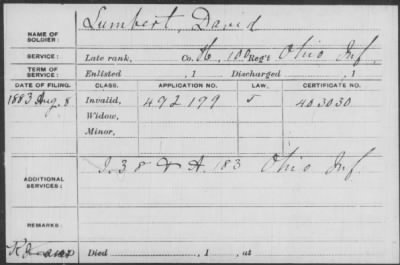 NAME OF SOLDIER: Lumbert, David
SERVICE: Late rank, Co. H, 100 Reg't Ohio Inf.
TERM OF SERVICE: Enlisted , 1 Discharged , 1
DATE OF FILING. CLASS. APPLICATION NO. LAW. CERTIFICATE NO.
1883 Aug. 8 Invalid, 492179 403030
Widow,
Minor,
ADDITIONAL SERVICES: 183 Ohio Inf.
REMARKS:
Died , 1 , at